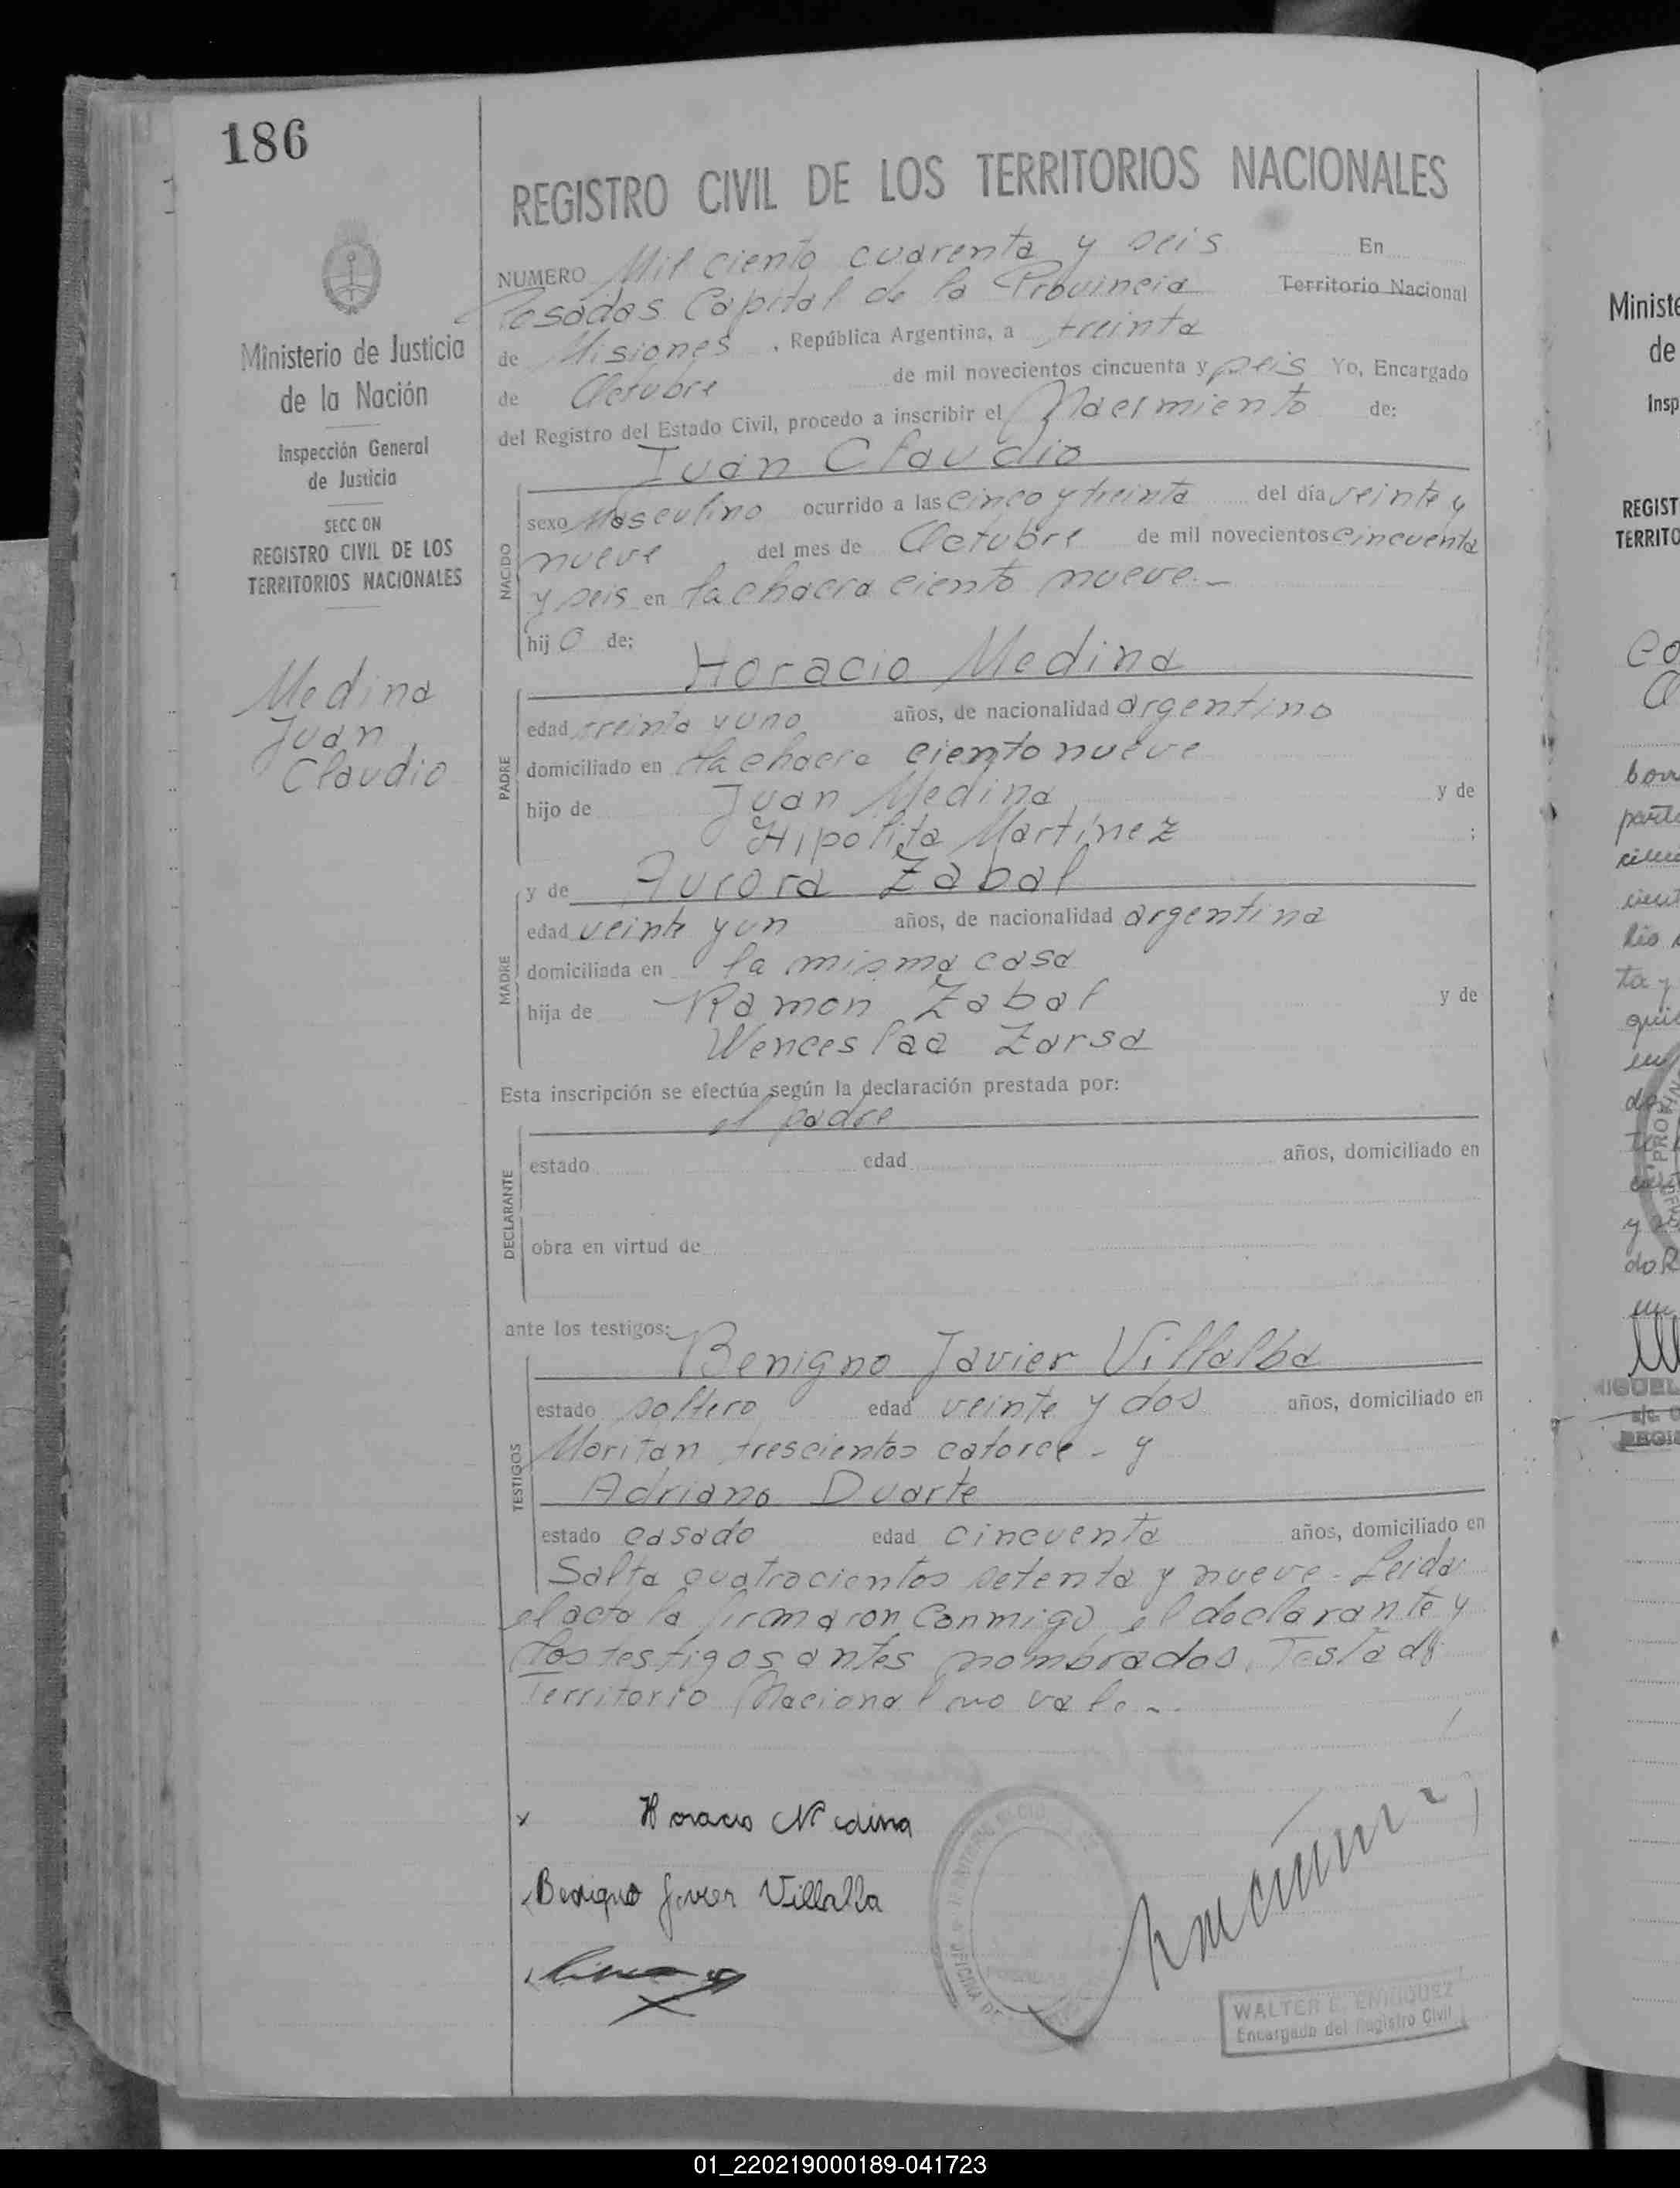 186
REGISTRO CIVIL DE LOS TERRITORIOS NACIONALES
NUMERO Mil ciento cuarenta y seis En
Posadas Capital de la Provincia Territorio Nacional
de Misiones, República Argentina, a treinta
de Octubre de mil novecientos cincuenta y seis Yo, Encargado
del Registro del Estado Civil, procedo a inscribir el Nacimiento de:
Juan Claudio
NACIDO
sexo Masculino ocurrido a las cinco y treinta del día veinte y
nueve del mes de Octubre de mil novecientos cincuenta
y seis en la chacra ciento nueve.-
hijo de:
Horacio Medina
PADRE
edad treinta y uno años, de nacionalidad argentino
domiciliado en la chacra ciento nueve
hijo de Juan Medina y de
Hipolita Martínez ;
y de Aurora Zabal
MADRE
edad veinte y un años, de nacionalidad argentina
domiciliada en la misma casa
hija de Ramon Zabal y de
Wenceslaa Zarsa
Esta inscripción se efectúa según la declaración prestada por:
el padre
DECLARANTE
estado edad años, domiciliado en
obra en virtud de
ante los testigos:
Benigno Javier Villalba
TESTIGOS
estado soltero edad veinte y dos años, domiciliado en
Moritan trescientos catorce - y
Adriano Duarte
estado casado edad cincuenta años, domiciliado en
Salta cuatrocientos setenta y nueve - Leida
el acta la firmaron conmigo el declarante y
los testigos antes nombrados. Testado
Territorio Nacional no vale -.
x Horacio Medina
Benigno Javier Villalba
WALTER E. ENRIQUEZ
Encargado del Registro Civil
Ministerio de Justicia
de la Nación
Inspección General
de Justicia
SECCION
REGISTRO CIVIL DE LOS
TERRITORIOS NACIONALES
Medina
Juan
Claudio
Ministe
de
Insp
REGIST
TERRITO
01_220219000189-041723